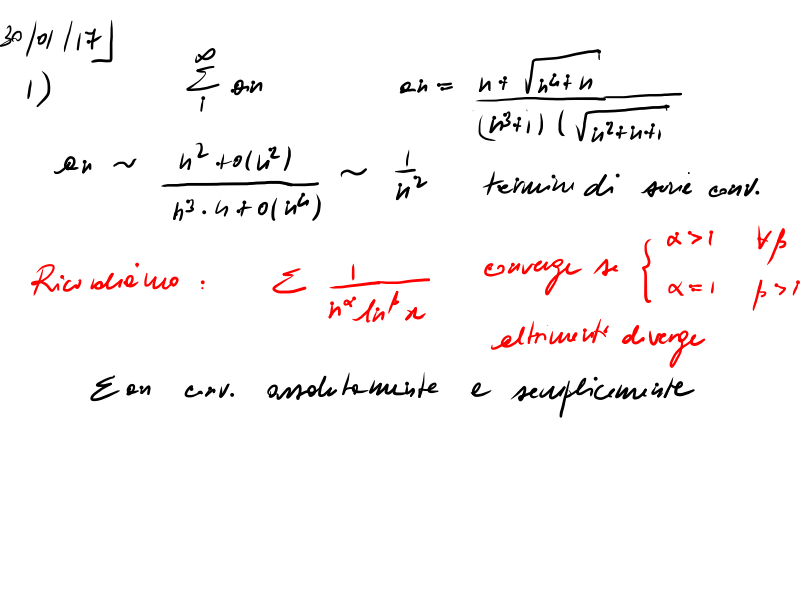 30/01/17
1) ∑_1^∞ an an = (n + √(n⁴+n)) / ((n³+1)(√(n²+n+1))
an ~ (n² + o(n²)) / (n³·n + o(n⁴)) ~ 1/n² termine di serie conv.
Ricordiamo: ∑ 1/(n^α ln^β n) converge se { α>1 ∀β
α=1 β>1
altrimenti diverge
∑ an conv. assolutamente e semplicemente